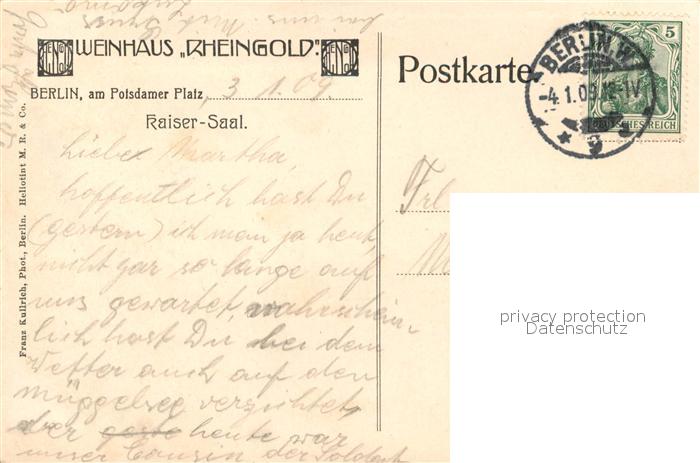 WEINHAUS „RHEINGOLD“
BERLIN, am Potsdamer Platz, 3. 1. 09.
Kaiser-Saal.
Postkarte
BERLIN. W.
-4.1.09.
9
5
DEUTSCHES REICH
Franz Kullrich, Phot., Berlin. Heliotint M. R. & Co.
Liebe Martha,
hoffentlich hast Du
(gestern) ich man ja heut,
nicht gar so lange auf
uns gewartet, wahrschein-
lich hast Du bei dem
Wetter auch auf den
Müggelsee verzichtet,
der gest heute war
unser Cousin, der Soldat
Frl
privacy protection
Datenschutz